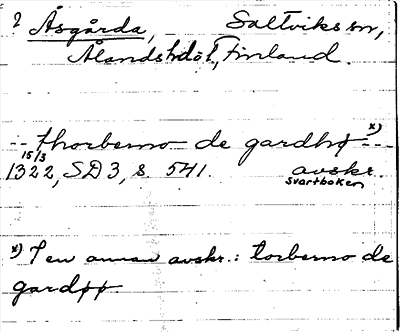 ? Åsgårda, Saltviks sn,
Ålands hdst, Finland.
-- thorberno de gardhø x) ---
15/3
1322, SD 3, s. 541. avskr.
Svartboken
x) I en annan avskr.: torberno de
gardøø.